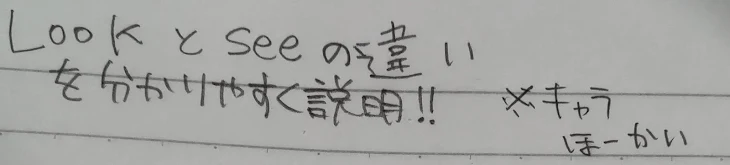 Look と see の違い
を分かりやすく説明!!
※キャラ
ほーかい